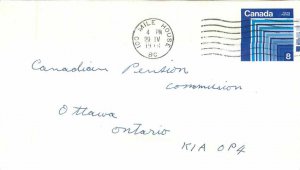 100 MILE HOUSE
4 PM
BC
Canada
8
Canadian Pension
Commission
Ottawa
Ontario
K1A OP4